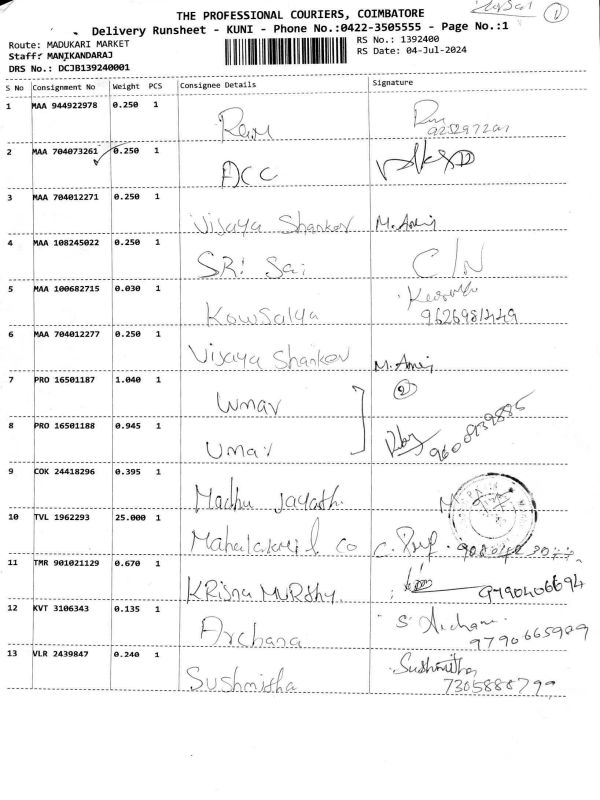 THE PROFESSIONAL COURIERS, COIMBATORE
Delivery Runsheet - KUNI - Phone No.:0422-3505555 - Page No.:1
Route: MADUKARI MARKET
RS No.: 1392400
Staff: MANIKANDARAJ
RS Date: 04-Jul-2024
DRS No.: DCJB139240001
S No Consignment No Weight PCS Consignee Details Signature
1 MAA 944922978 0.250 1 Ram
2 MAA 704073261 0.250 1 ACC
3 MAA 704012271 0.250 1 Vijaya Shanker M.
4 MAA 108245022 0.250 1 SRi Sai C/N
5 MAA 100682715 0.030 1 Kowsalya
6 MAA 704012277 0.250 1 Vijaya Shanker M.
7 PRO 16501187 1.040 1 Umar 2
8 PRO 16501188 0.945 1 Umar 9600939885
9 COK 24418296 0.395 1 Madhu
10 TVL 1962293 25.000 1 Co
11 TMR 901021129 0.670 1 KRisna MURthy 9790406694
12 KVT 3106343 0.135 1 Archana S.
9790665909
13 VLR 2439847 0.240 1 Sushmitha Sushmitha
7305888799